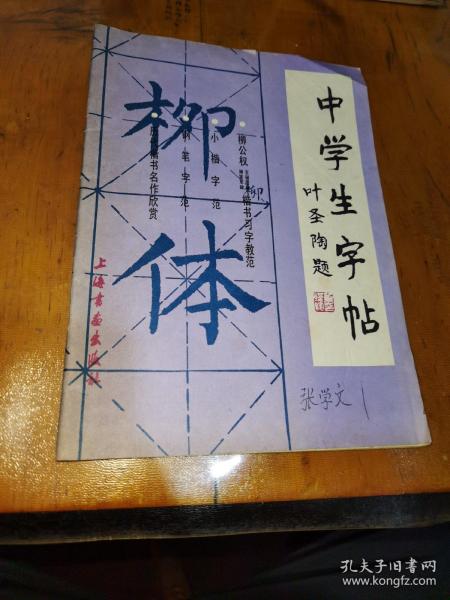 中学生字帖
叶圣陶题
柳体
柳公权
楷书习字教范
小楷字范
钢笔字范
楷书名作欣赏
柳
上海书画出版社
张学文
孔夫子旧书网
www.kongfz.com